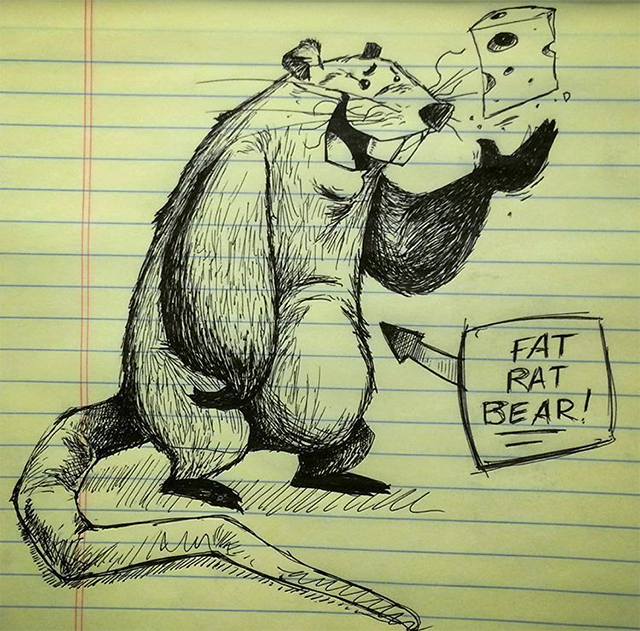 FAT
RAT
BEAR!